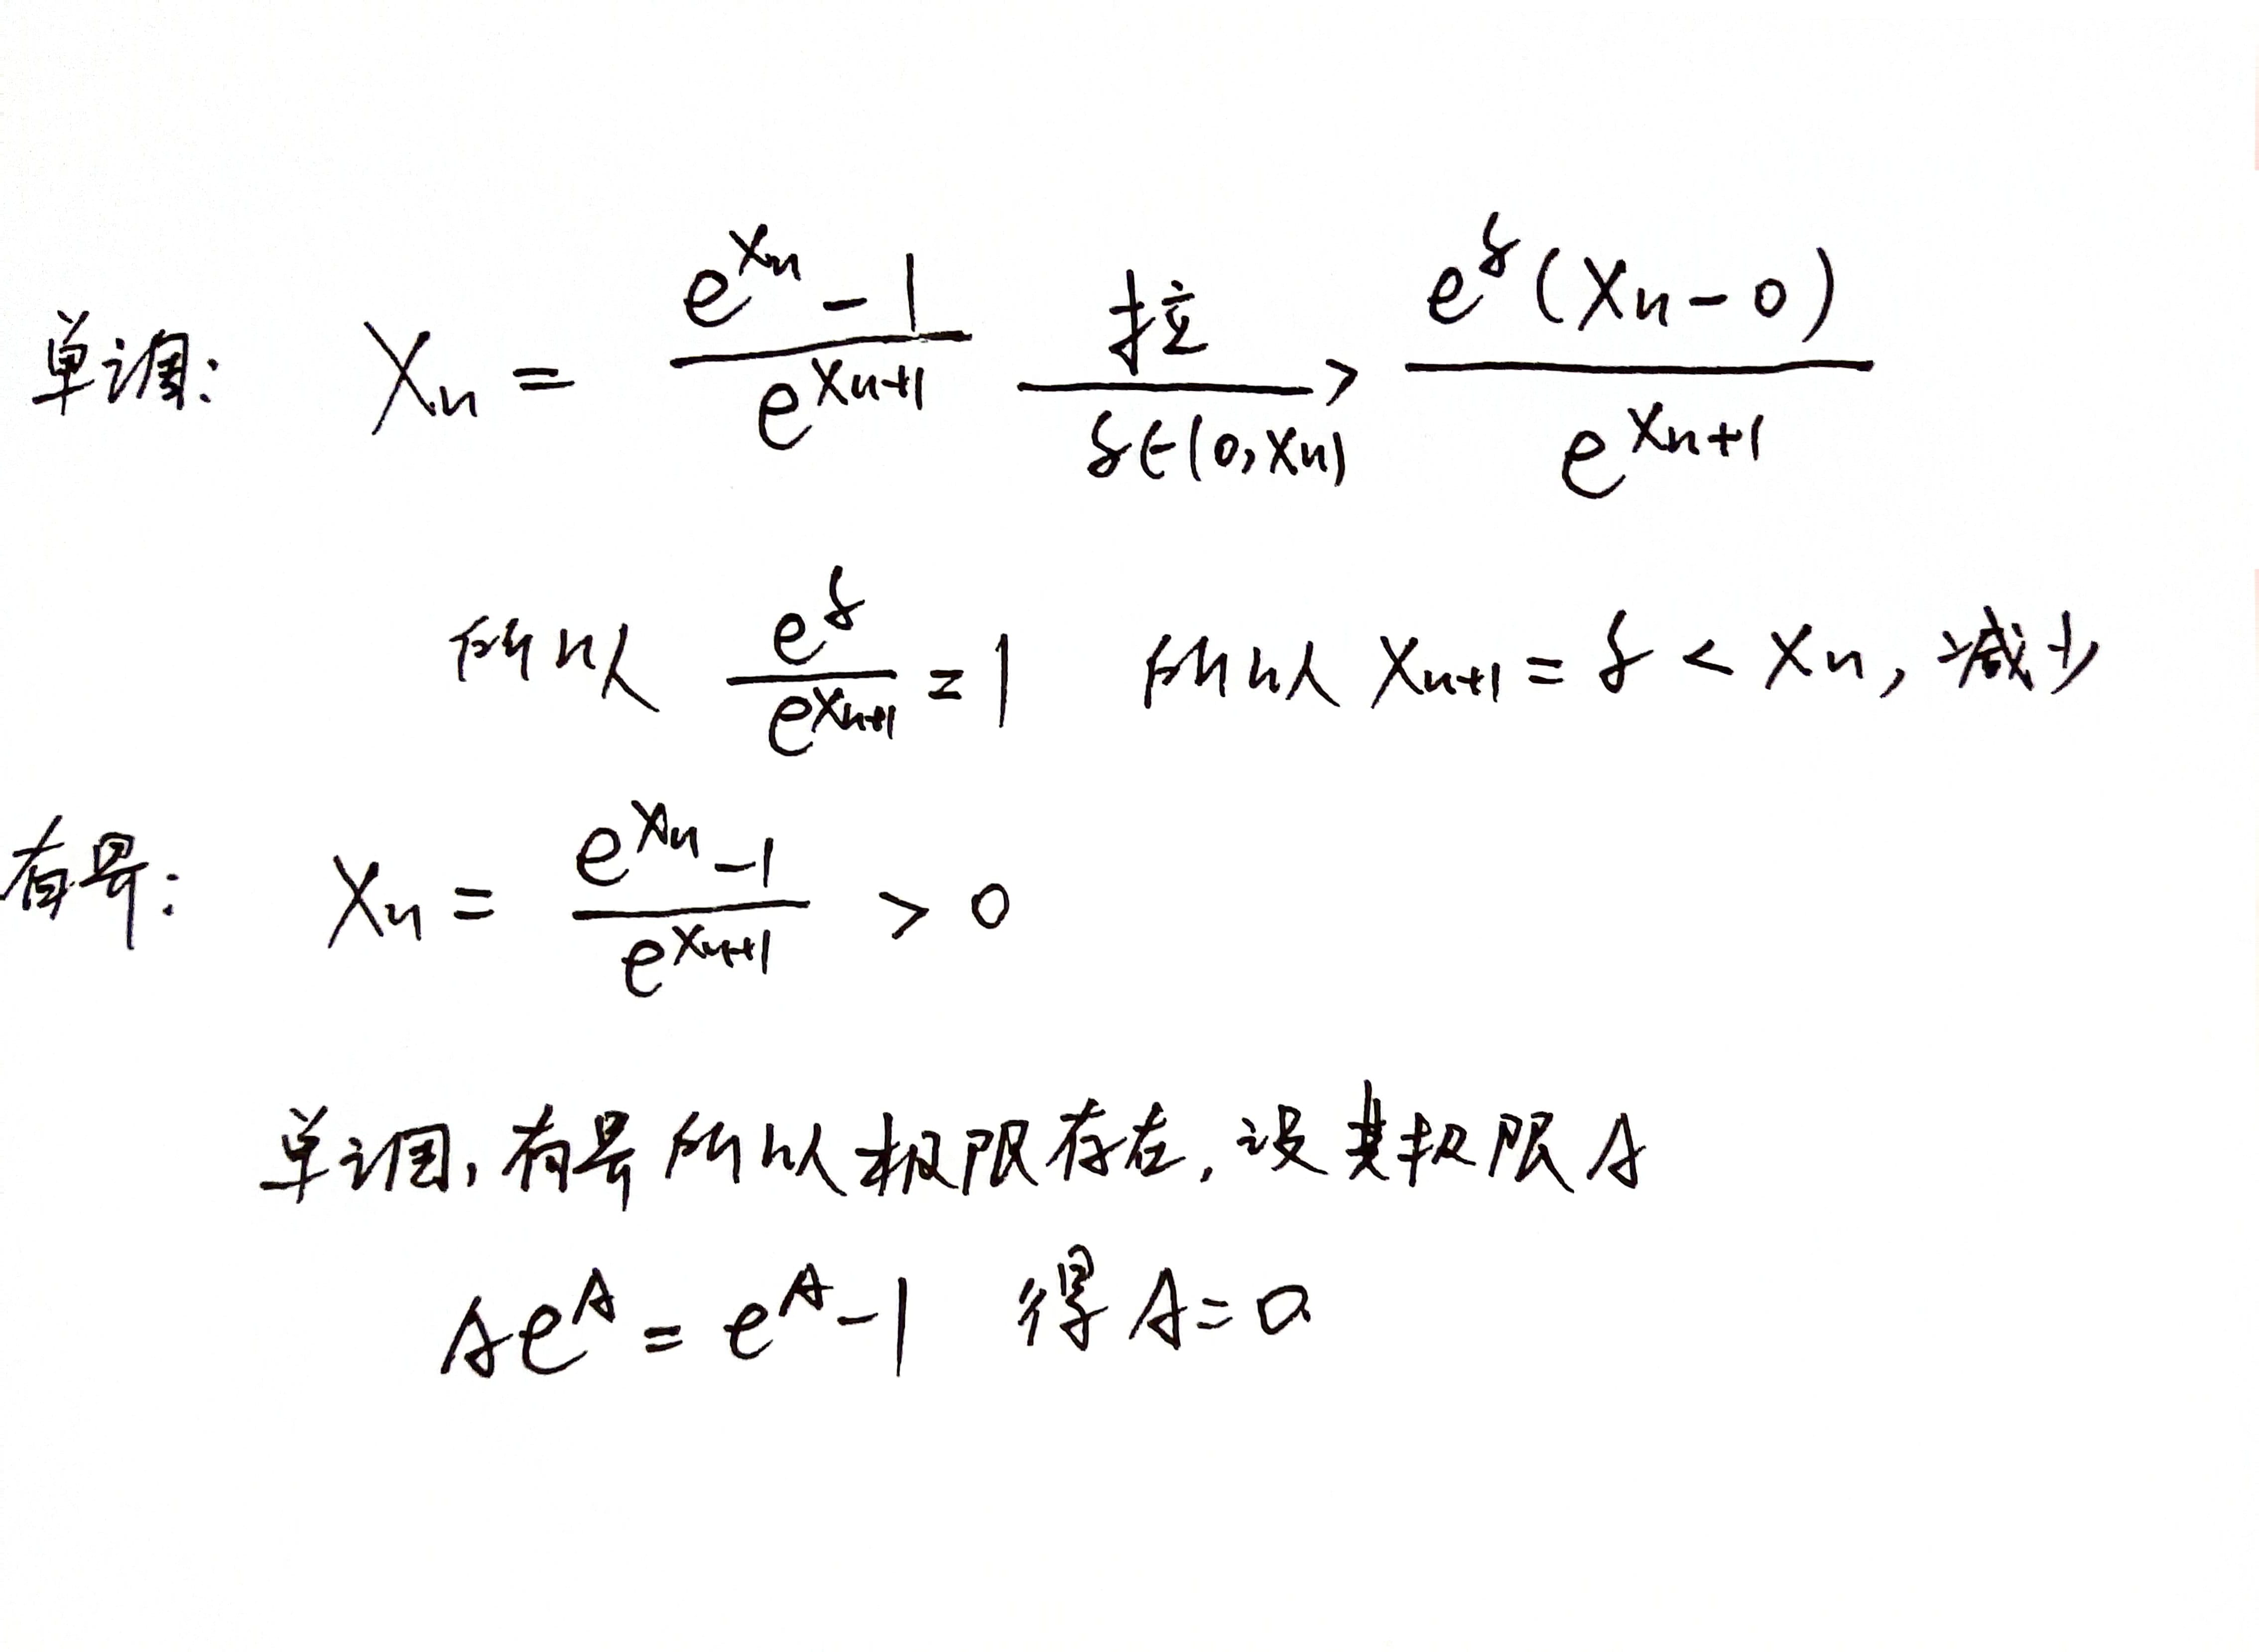 单调: Xn = (e^{Xn} - 1) / e^{Xn+1} 拉 / δ∈(0, Xn) > e^δ (Xn - 0) / e^{Xn+1}
所以 e^δ / e^{Xn+1} = 1 所以 Xn+1 = δ < Xn, 减少
有界: Xn = (e^{Xn} - 1) / e^{Xn+1} > 0
单调, 有界所以极限存在, 设其极限A
Ae^A = e^A - 1 得 A = 0